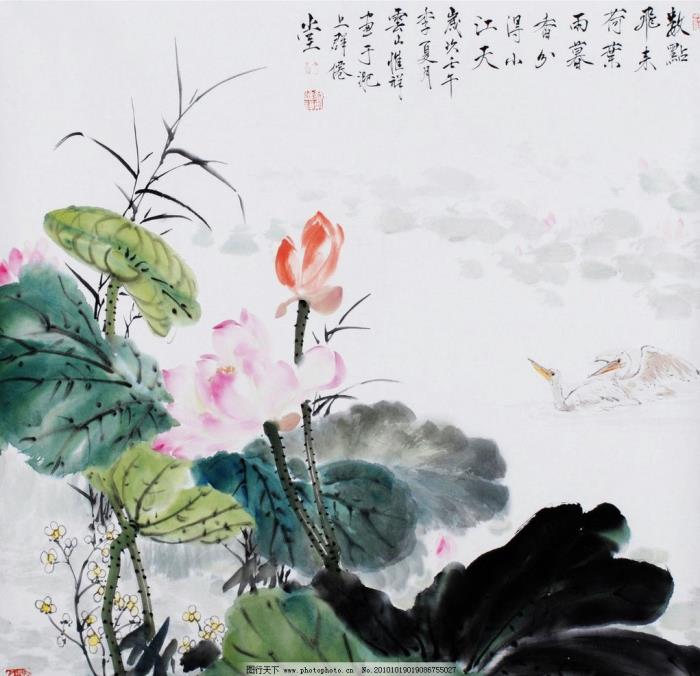 數點
飛来
荷葉
雨暮
香分
得小
江天
歲次壬午
季夏月
雲山惟祥
畫于滬
上群僊
堂
图行天下 www.photophoto.cn No.20101019019086755027